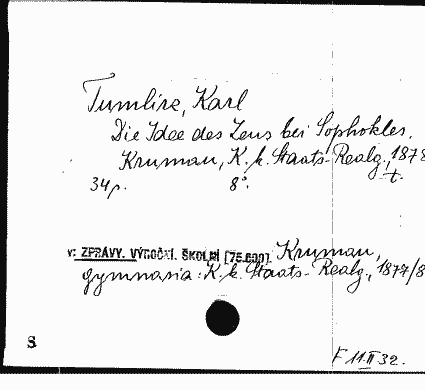 Tumlirz, Karl
Die Idee des Zeus bei Sophokles.
Krumau, K. k. Staats-Realg., 1878
t.
34 p. 8°.
v: ZPRÁVY. VÝROČNÍ. ŠKOLNÍ [75.600]. Krumau,
gymnasia: K. k. Staats-Realg., 1877/8
S
F 11.II 32.